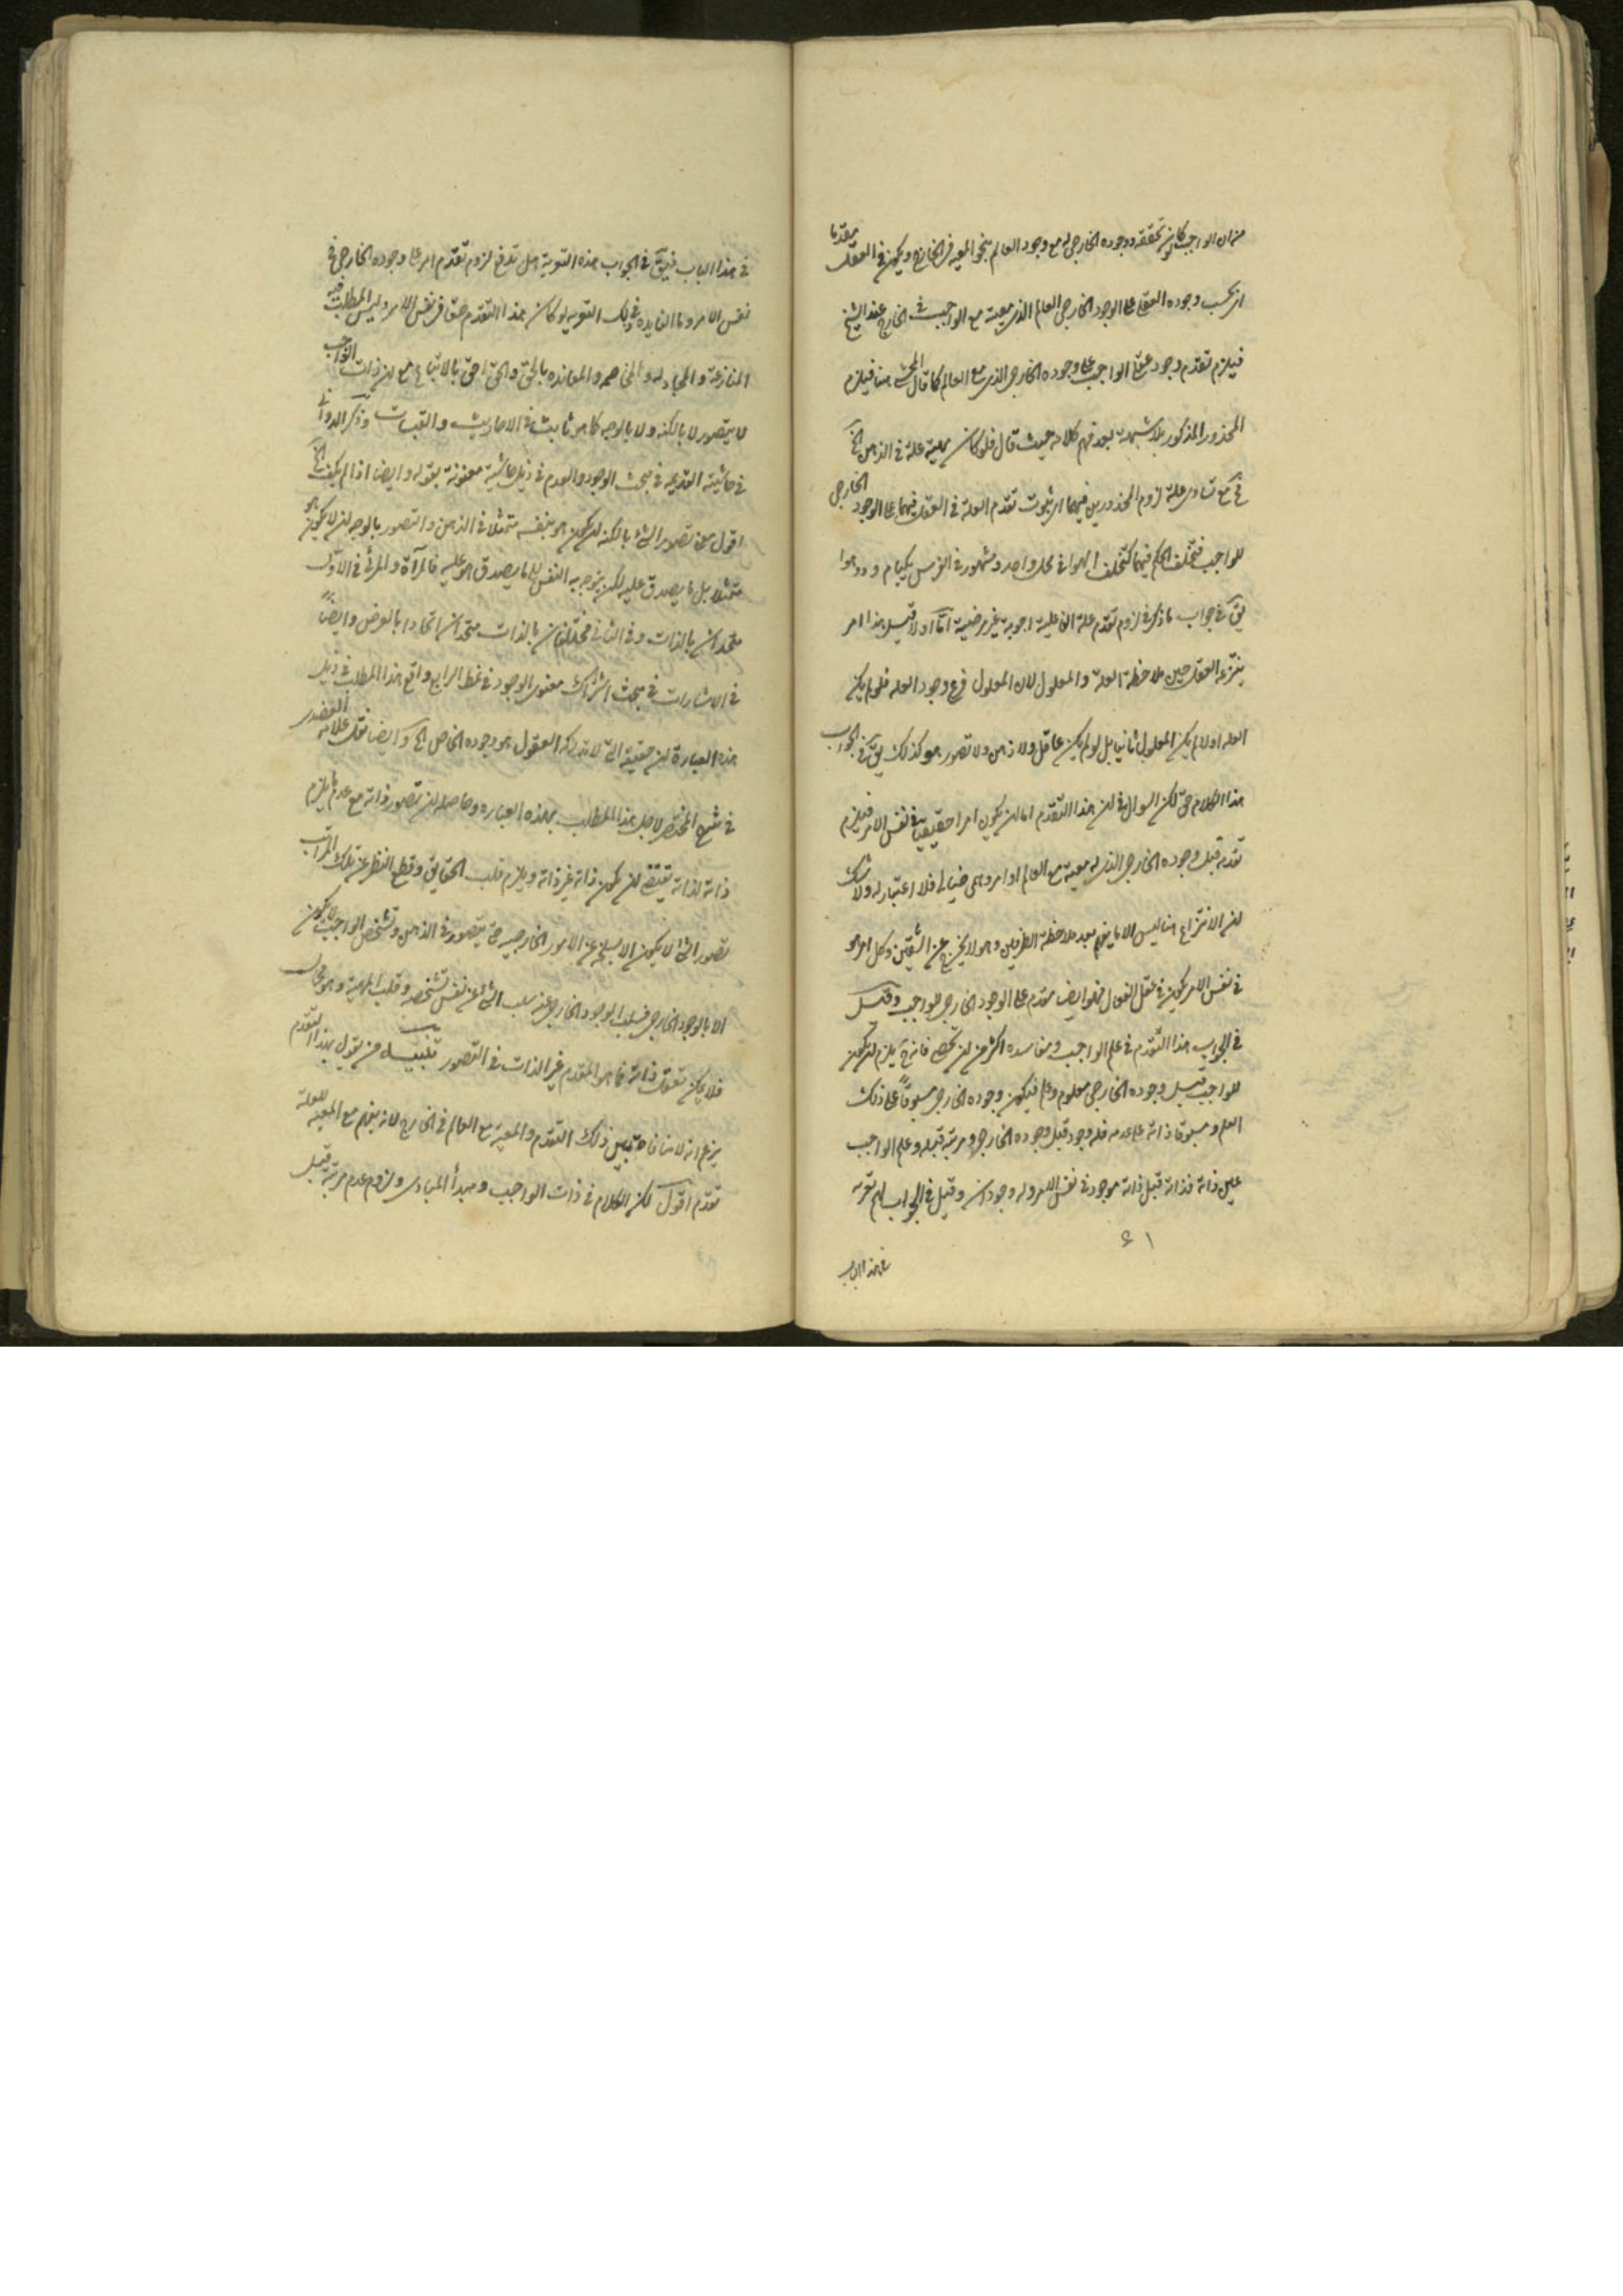 من ان الواجب كانه تحققه ووجوده الخارجى له مع وجود العالم بنحو المعية فى الخارج ويكون فى العقل مقدما
اى بحسب وجوده العقلى على الوجود الخارجى العالم الذى معية مع الواجب فى الخارج عند الشيخ
فيلزم تقدم وجود عقلى الواجب على وجوده الخارجى الذى مع العالم كما قال المحشى هنا فيلزم
المحذور المذكور بلا شبهة بعد فهم كلامه حيث قال فلو كان مهية علة فى الذهن الخ
لزوم المحذورين فيهما اى ثبوت تقدم العلة فى العقل فيهما على الوجود الخارجى
للواجب فتخلف الحكم فيهما كتخلف الهوا فى محل واحد ومشهور فى الفرس يكبام ودو هوا
يق فى جواب ما ذكر فى لزوم تقدم علة اجوبة غير مرضية اما اولا قيل هذا امر
ينتزعه العقل حين ملاحظة العلة والمعلول لان المعلول فرع وجود العله فلو لم يكن
العله اولا لم يكن المعلول ثانيا بل لو لم يكن عاقل ولا ذهن ولا تصور هو كذلك يق فى الجواب
هذا الكلام حق لكن السوال فى ان هذا التقدم اما ان يكون امرا حقيقيا فى نفس الامر فيلزم
تقدمه قبل وجوده الخارجى الذى له معية مع العالم او امر وهمى خيالى فلا اعتبار له ولا شك
ان الانتزاع هنا ليس الا ما يفهم بعد ملاحظة الطرفين وهو لا يخرج عن الشقين وكل امر هو
فى نفس الامر يكون فى عقل الفعال فهو ايضا مقدم على الوجود الخارجى للواجب وقيل
فى الجواب هذا التقدم فى علم الواجب ومفاسده اكثر من ان تحصى فانه ح يلزم ان يكون
للواجب قبل وجوده الخارجى معلوم وعلم فيكون وجوده الخارجى مسبوقا على ذلك
العلم ومسبوقا ذاته على عدمه فله وجود قبل وجوده الخارجى ومرتبة قبله وعلم الواجب
عين ذاته فذاته قبل ذاته موجود فى نفس الامر وله وجودان وقيل فى الجواب
۶۱
فى هذا الباب
فى هذا الباب فيق فى الجواب هذه التسوية هل تدفع لزوم تقدم امر على وجوده الخارجى فى
نفس الامر وما الفايدة فى تلك التسوية لو كان هذا التقدم حق فى نفس الامر وليس المطلب فيه
المنازعة والمجادله والمخاصمه والمعانده بالحق والحق احق بالاتباع مع ان ذات الواجب
لا يتصور لا بالكنه ولا بالوجه كما هو ثابت فى الاحاديث والقبسات وذكر الدوانى
فى حاشيته القديمه فى بحث الوجود والعدم فى ذيل حاشية معنونة بقوله وايضا اذا لم يكف الخ
اقول معنى تصور الشئ بالكنه ان يكون هو بنفسه متمثلا فى الذهن والتصور بالوجه ان لا يكون هو
متمثلا بل ما يصدق عليه لكن يتوجه به النفس الى ما يصدق هو عليه فالمرآة والمرئى فى الاول
متحدان بالذات وفى الثانى مختلفان بالذات متحدان اتحادا بالعرض وايضا
فى الاشارات فى بحث اشتراك معنوى الوجود فى نمط الرابع واقع هذا المطلب فى ذيل
هذه العبارة ان حقيقته التى لا تدركه العقول هو وجوده الخاص الخ وايضا نقل علامه العضدى
فى شرح المختصر لاجل هذا المطلب بهذه العباره وحاصله ان تصور ذاته مع عدم ما يلزم
ذاته لذاته يقتضى ان يكون ذاته غير ذاته ويلزم قلب الحقايق وقطع النظر عن تلك المراتب
تصور الشئ لا يكون الا بسلخه عن الامور الخارجيه حتى يتصور فى الذهن وتشخص الواجب لا يكون
الا بالوجود الخارجى فسلب الوجود الخارجى عنه سلب الشئ عن نفس تشخصه وقلب المهية وهو محال
فلا يمكن تعقل ذاته فما هو المقدم غير الذات فى التصور تنبيه من يقول بهذا التقدم
يزعم انه لا منافاة بين ذلك التقدم والمعية مع العالم فى الخارج لانه يفهم مع المعية للعلة
تقدم اقول لكن الكلام فى ذات الواجب ومبدأ المبادى ولزوم عدم مرتبة قبل